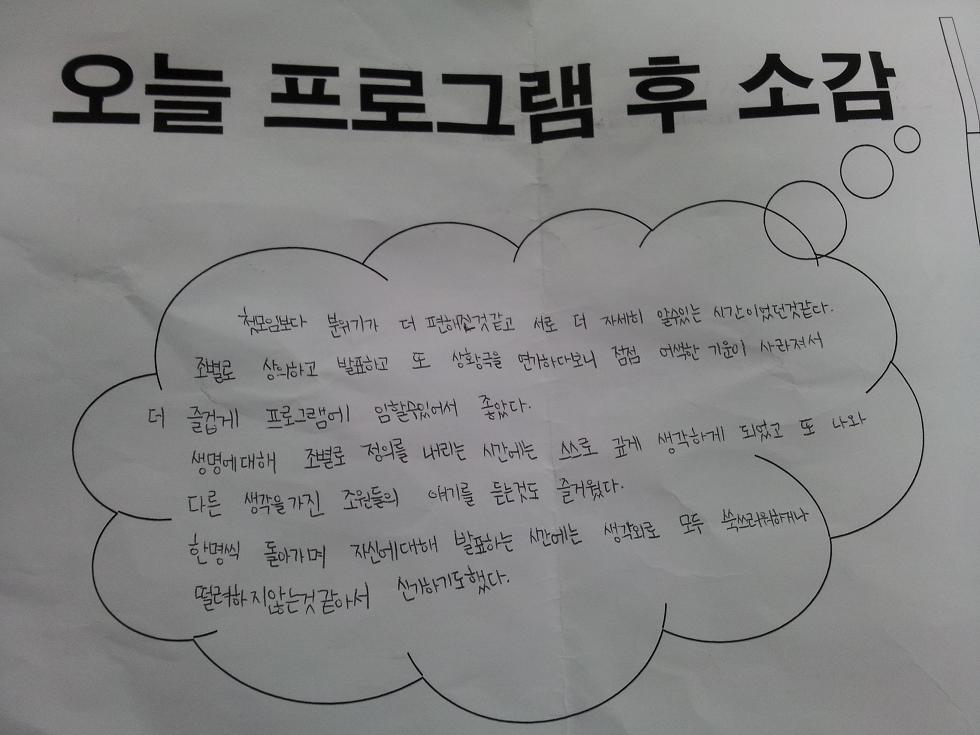 오늘 프로그램 후 소감
첫모임보다 분위기가 더 편해진것같고 서로 더 자세히 알수있는 시간이었던것같다.
조별로 상의하고 발표하고 또 상황극을 연기하다보니 점점 어색한 기운이 사라져서
더 즐겁게 프로그램에 임할수있어서 좋았다.
생명에대해 조별로 정의를 내리는 시간에는 스스로 깊게 생각하게 되었고 또 나와
다른 생각을가진 조원들의 얘기를 듣는것도 즐거웠다.
한명씩 돌아가며 자신에대해 발표하는 시간에는 생각외로 모두 쑥쓰러워하거나
떨려하지않는것같아서 신기하기도했다.